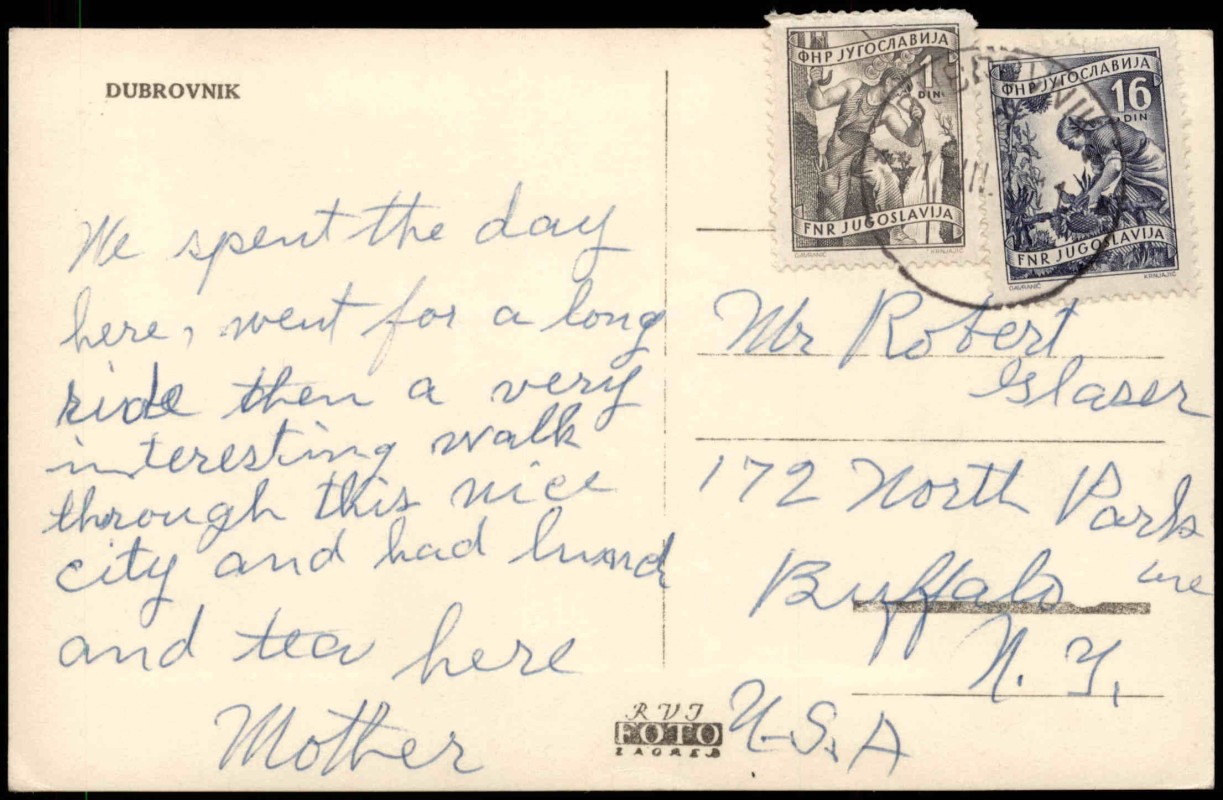 DUBROVNIK
We spent the day
here, went for a long
ride then a very
interesting walk
through this nice
city and had lunch
and tea here
Mother
ФНР ЈУГОСЛАВИЈА
1
DIN
FNR JUGOSLAVIJA
GAVRANIĆ KRNJAJIĆ
ФНР ЈУГОСЛАВИЈА
16
DIN
FNR JUGOSLAVIJA
GAVRANIĆ KRNJAJIĆ
Mr Robert
Glaser
172 North Park
ave
Buffalo
N. Y.
U.S.A
RVI
FOTO
ZAGREB